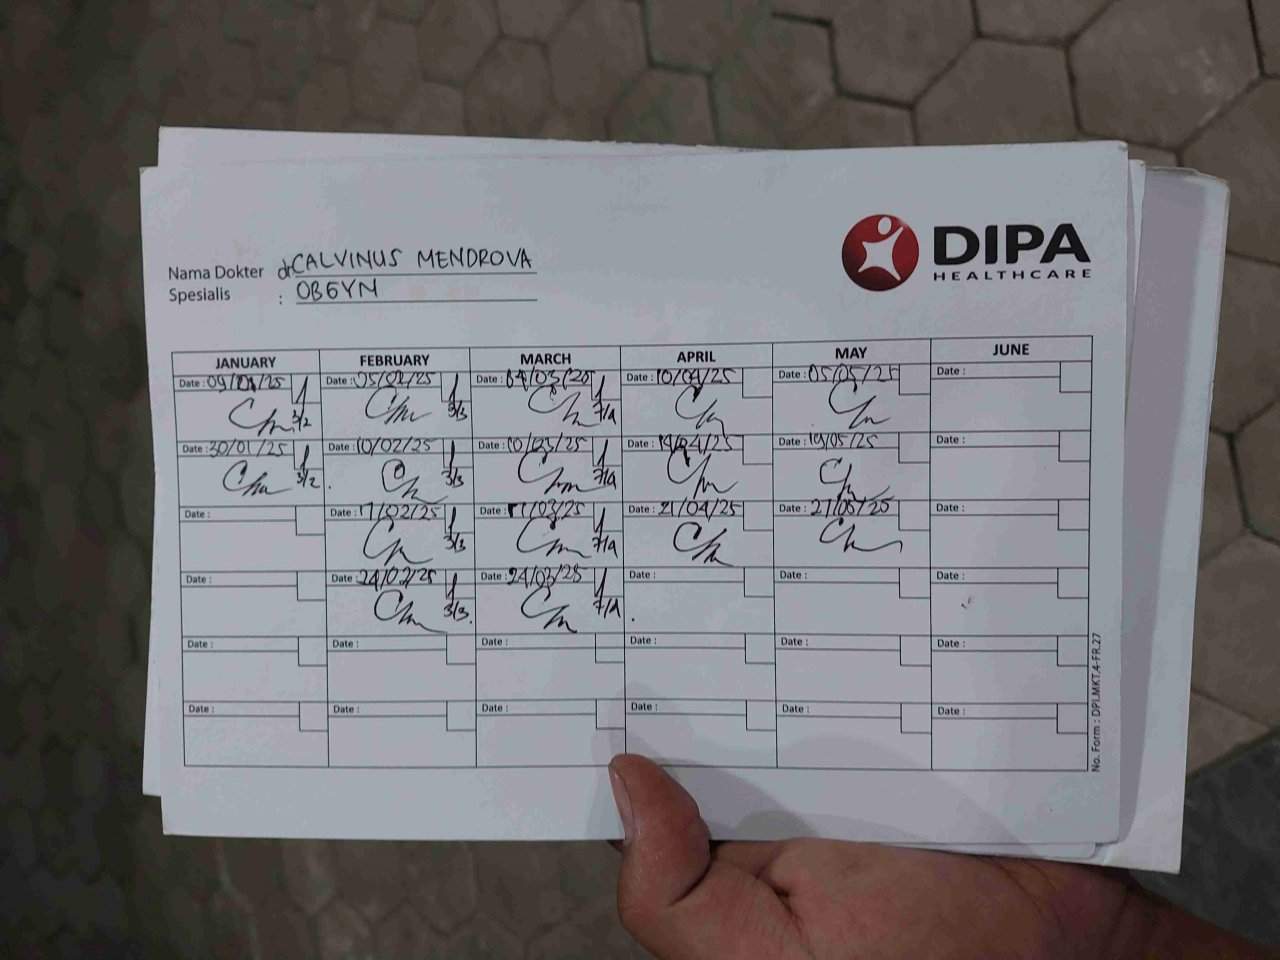 DIPA
HEALTHCARE
Nama Dokter dr CALVINUS MENDROVA
Spesialis : OBGYN
JANUARY FEBRUARY MARCH APRIL MAY JUNE
Date : 09/01/25 Date : 05/02/25 Date : 04/03/25 Date : 10/04/25 Date : 05/05/25 Date :
3/2 3/3 7/4
Date : 30/01/25 Date : 10/02/25 Date : 10/03/25 Date : 14/04/25 Date : 19/05/25 Date :
3/2 3/3 7/4
Date : Date : 17/02/25 Date : 17/03/25 Date : 21/04/25 Date : 27/05/25 Date :
3/3 7/4
Date : Date : 24/02/25 Date : 24/03/25 Date : Date : Date :
3/3 7/4
Date : Date : Date : Date : Date : Date :
Date : Date : Date : Date : Date : Date :
No. Form : DPI.MKT.4-FR.27